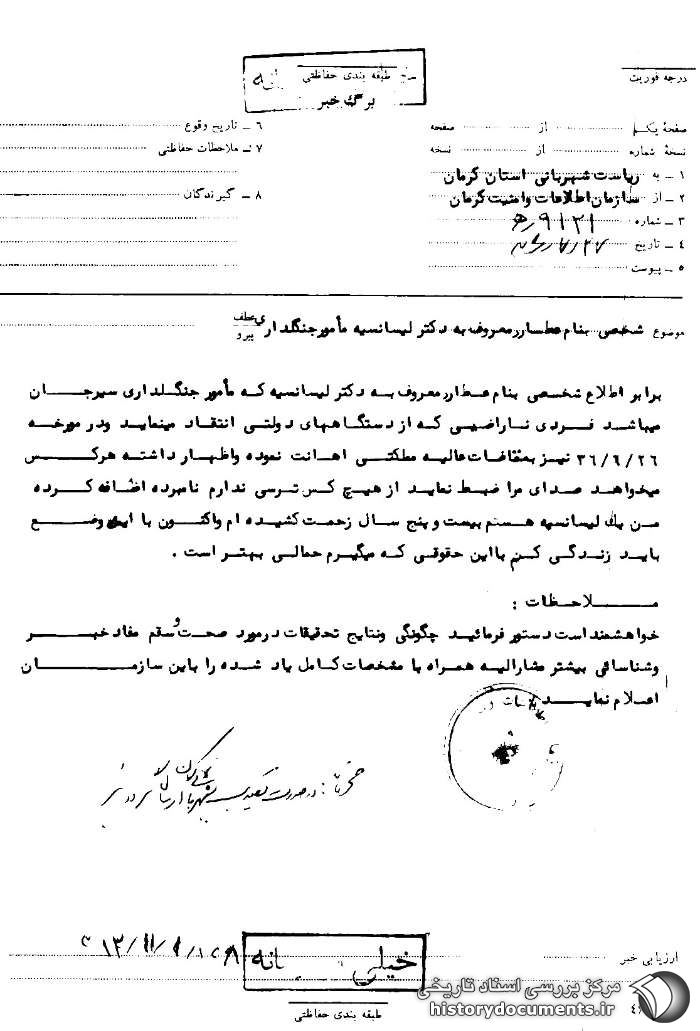 درجه فوریت
طبقه بندی حفاظتی
برگ خبر
صفحهٔ یکم از صفحه
نسخهٔ شماره از نسخه
۱ ـ به ریاست شهربانی استان کرمان
۲ ـ از سازمان اطلاعات و امنیت کرمان
۳ ـ شماره ۹۱۲۱/ه
۴ ـ تاریخ
۵ ـ پیوست
۶ ـ تاریخ وقوع
۷ ـ ملاحظات حفاظتی
۸ ـ گیرندگان
موضوع شخصی بنام عطار معروف به دکتر لیسانسیه مأمور جنگلداری عطف پیرو
برابر اطلاع شخصی بنام عطار معروف به دکتر لیسانسیه که مأمور جنگلداری سیرجان
میباشد فردی ناراضیی که از دستگاههای دولتی انتقاد مینماید ودر مورخه
۳۶/۶/۲۶ نیز بمقامات عالیه مملکتی اهانت نموده واظهار داشته هرکس
میخواهد صدای مرا ضبط نماید از هیچ کس ترسی ندارم نامبرده اضافه کرده
من یك لیسانسیه هستم بیست و پنج سال زحمت کشیده ام واکنون با این وضع
باید زندگی کنم با این حقوقی که میگیرم حمالی بهتر است .
ملاحظات :
خواهشمند است دستور فرمائید چگونگی ونتایج تحقیقات درمورد صحت و سقم مفاد خبر
وشناسائی بیشتر مشارالیه همراه با مشخصات کامل یاد شده را باین سازمان
اعلام نمایند
ارزیابی خبر
خیلی
طبقه بندی حفاظتی
مرکز بررسی اسناد تاریخی
historydocuments.ir